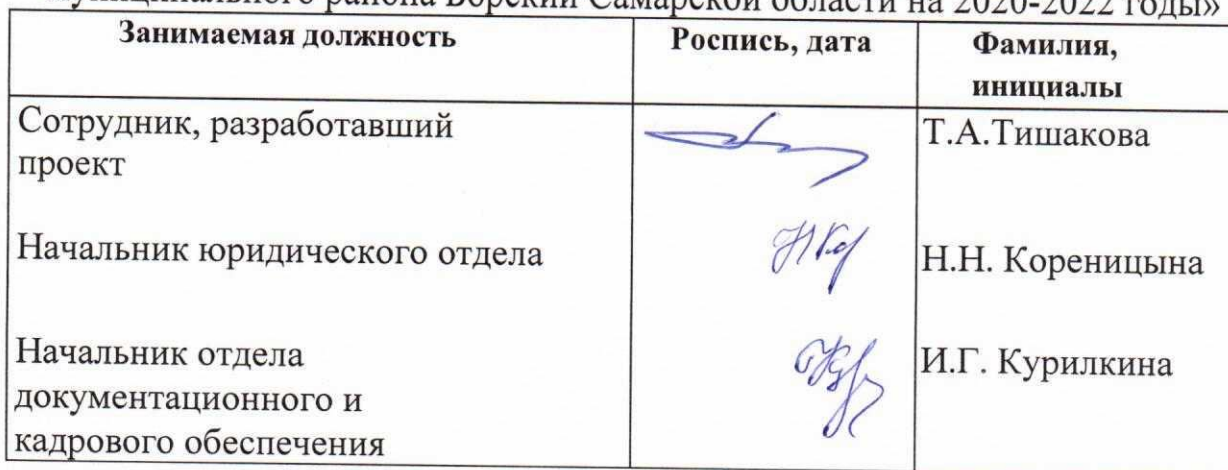 муниципального района Борский Самарской области на 2020-2022 годы»
Занимаемая должность Роспись, дата Фамилия,
инициалы
Сотрудник, разработавший Т.А.Тишакова
проект
Начальник юридического отдела Н.Н. Кореницына
Начальник отдела И.Г. Курилкина
документационного и
кадрового обеспечения